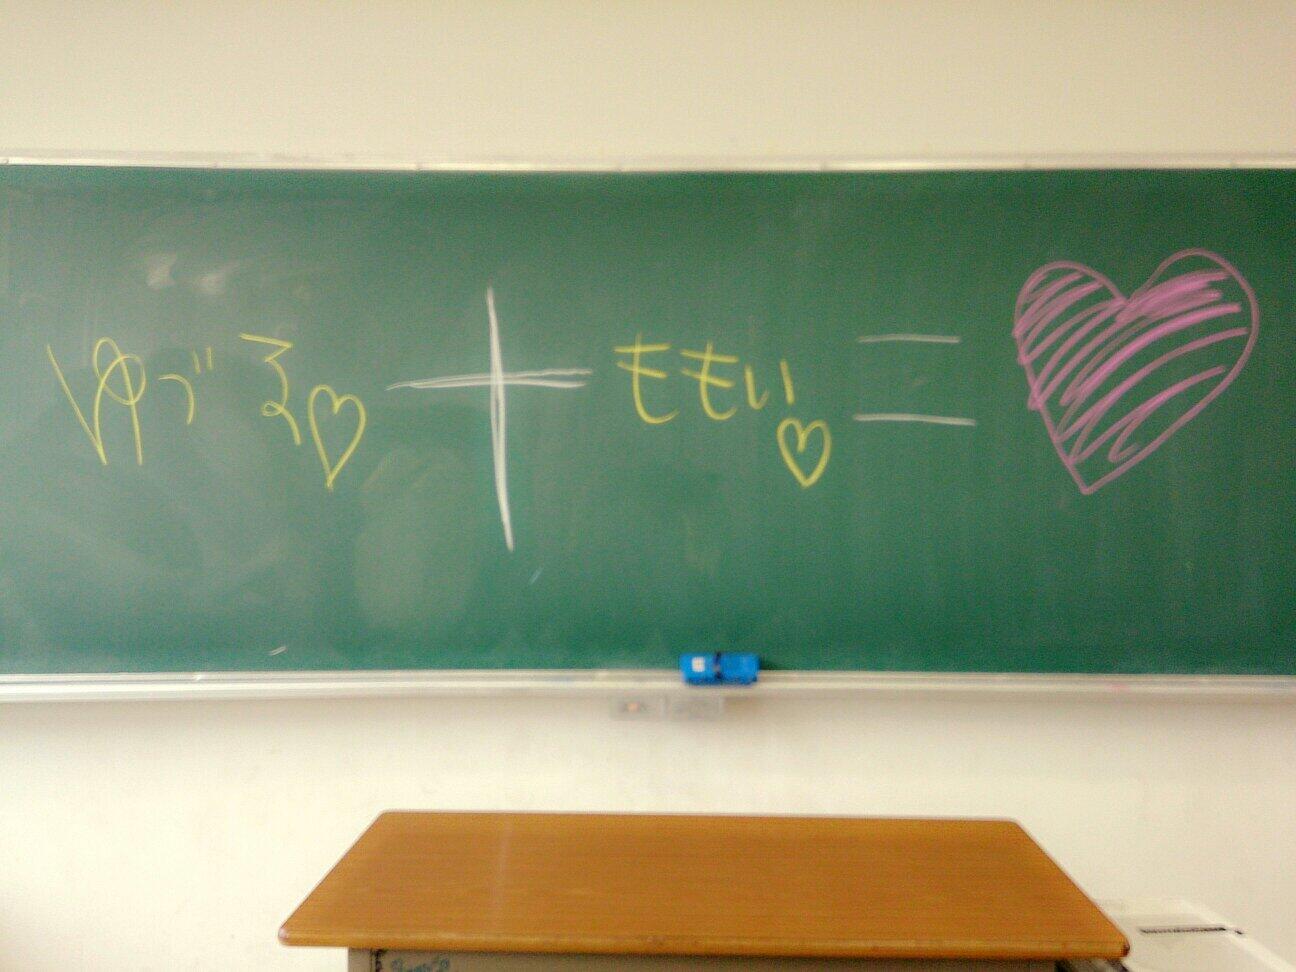 ゆづる♡ + ももい♡ = ♡